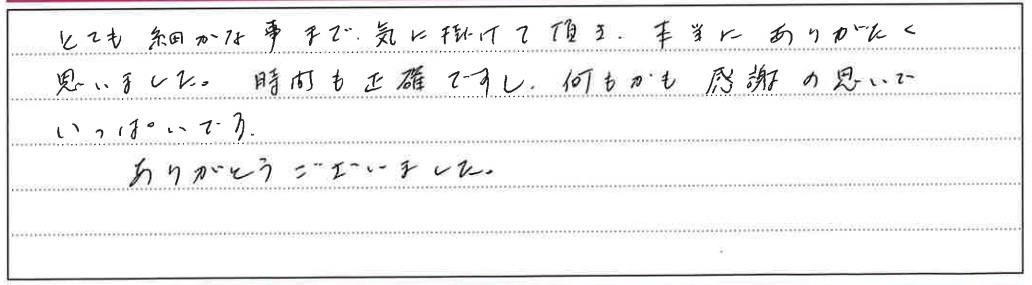 とても細かな事まで、気に掛けて頂き、本当にありがたく
思いました。時間も正確ですし、何もかも感謝の思いで
いっぱいです。
ありがとうございました。